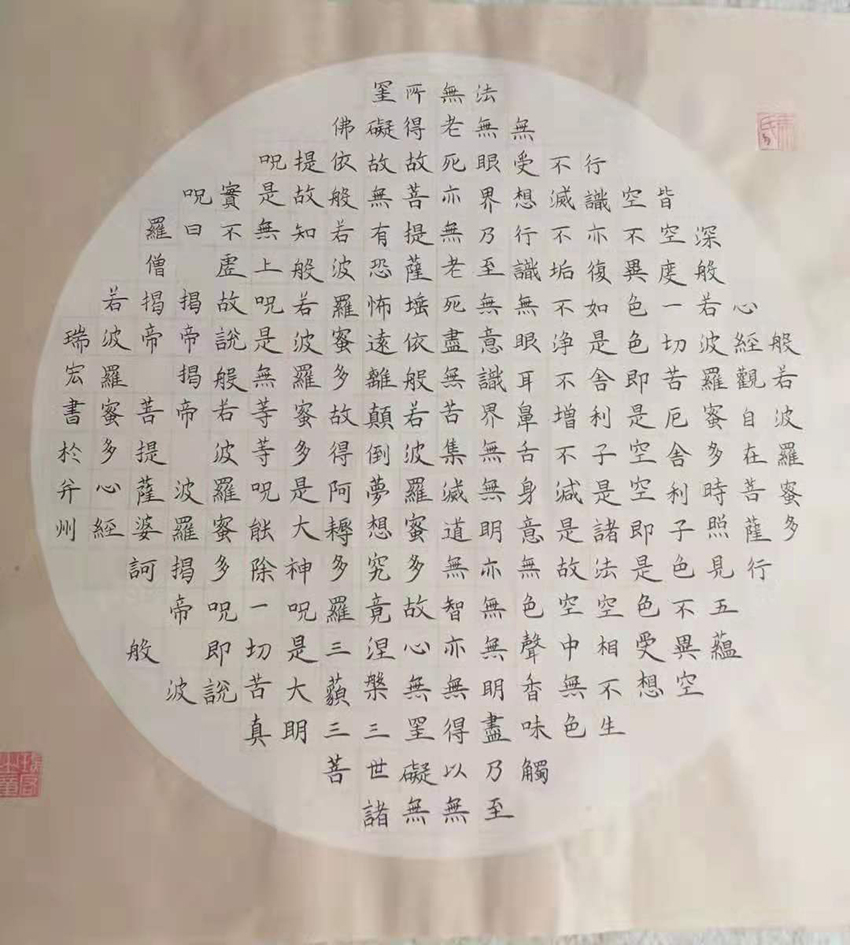 般若波羅蜜多
心經觀自在菩薩行
深般若波羅蜜多時照見五蘊
皆空度一切苦厄舍利子色不異空
空不異色色即是空空即是色受想
行識亦復如是舍利子是諸法空相不生
不滅不垢不浄不增不減是故空中無色
無受想行識無眼耳鼻舌身意無色聲香味觸
法無眼界乃至無意識界無無明亦無無明盡乃至
無老死亦無老死盡無苦集滅道無智亦無得以無
所得故菩提薩埵依般若波羅蜜多故心無罣礙無
罣礙故無有恐怖遠離顛倒夢想究竟涅槃三世諸
佛依般若波羅蜜多故得阿耨多羅三藐三菩
提故知般若波羅蜜多是大神呪是大明
呪是無上呪是無等等呪能除一切苦真
實不虛故說般若波羅蜜多呪即說
呪曰 揭帝揭帝 波羅揭帝 波
羅僧揭帝 菩提薩婆訶 般
若波羅蜜多心經
瑞宏書於并州